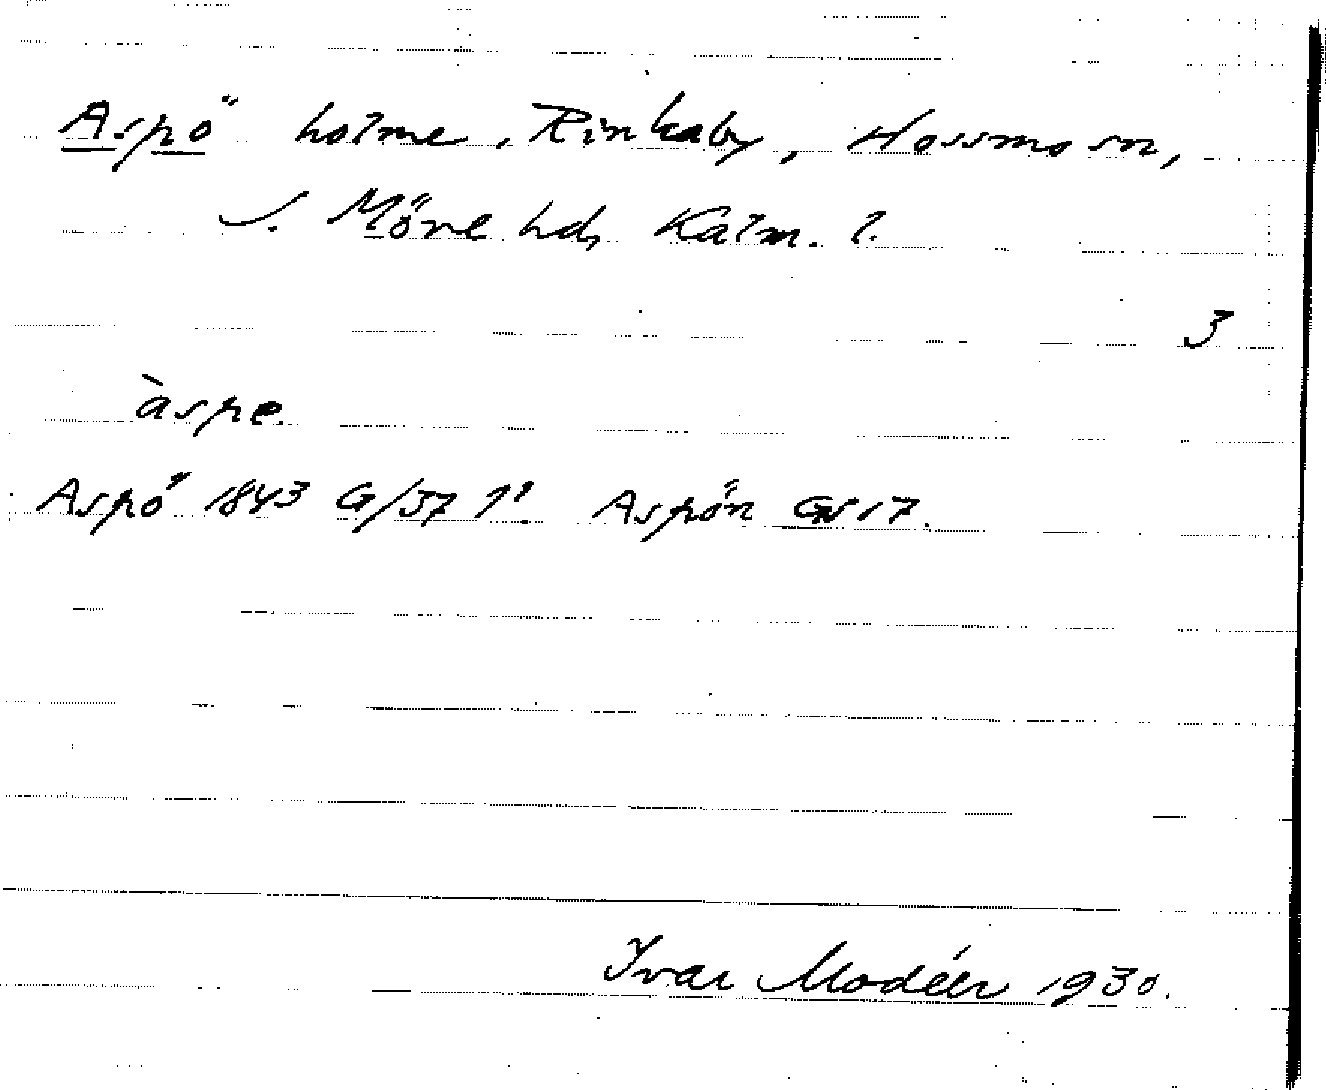 Aspö holme, Rinkaby, Hossmo sn,
S. Möre hd, Kalm. l.
3
àspe.
Aspö 1843 G/37 1¹ Aspön GS 17.
Ivar Modéer 1930.